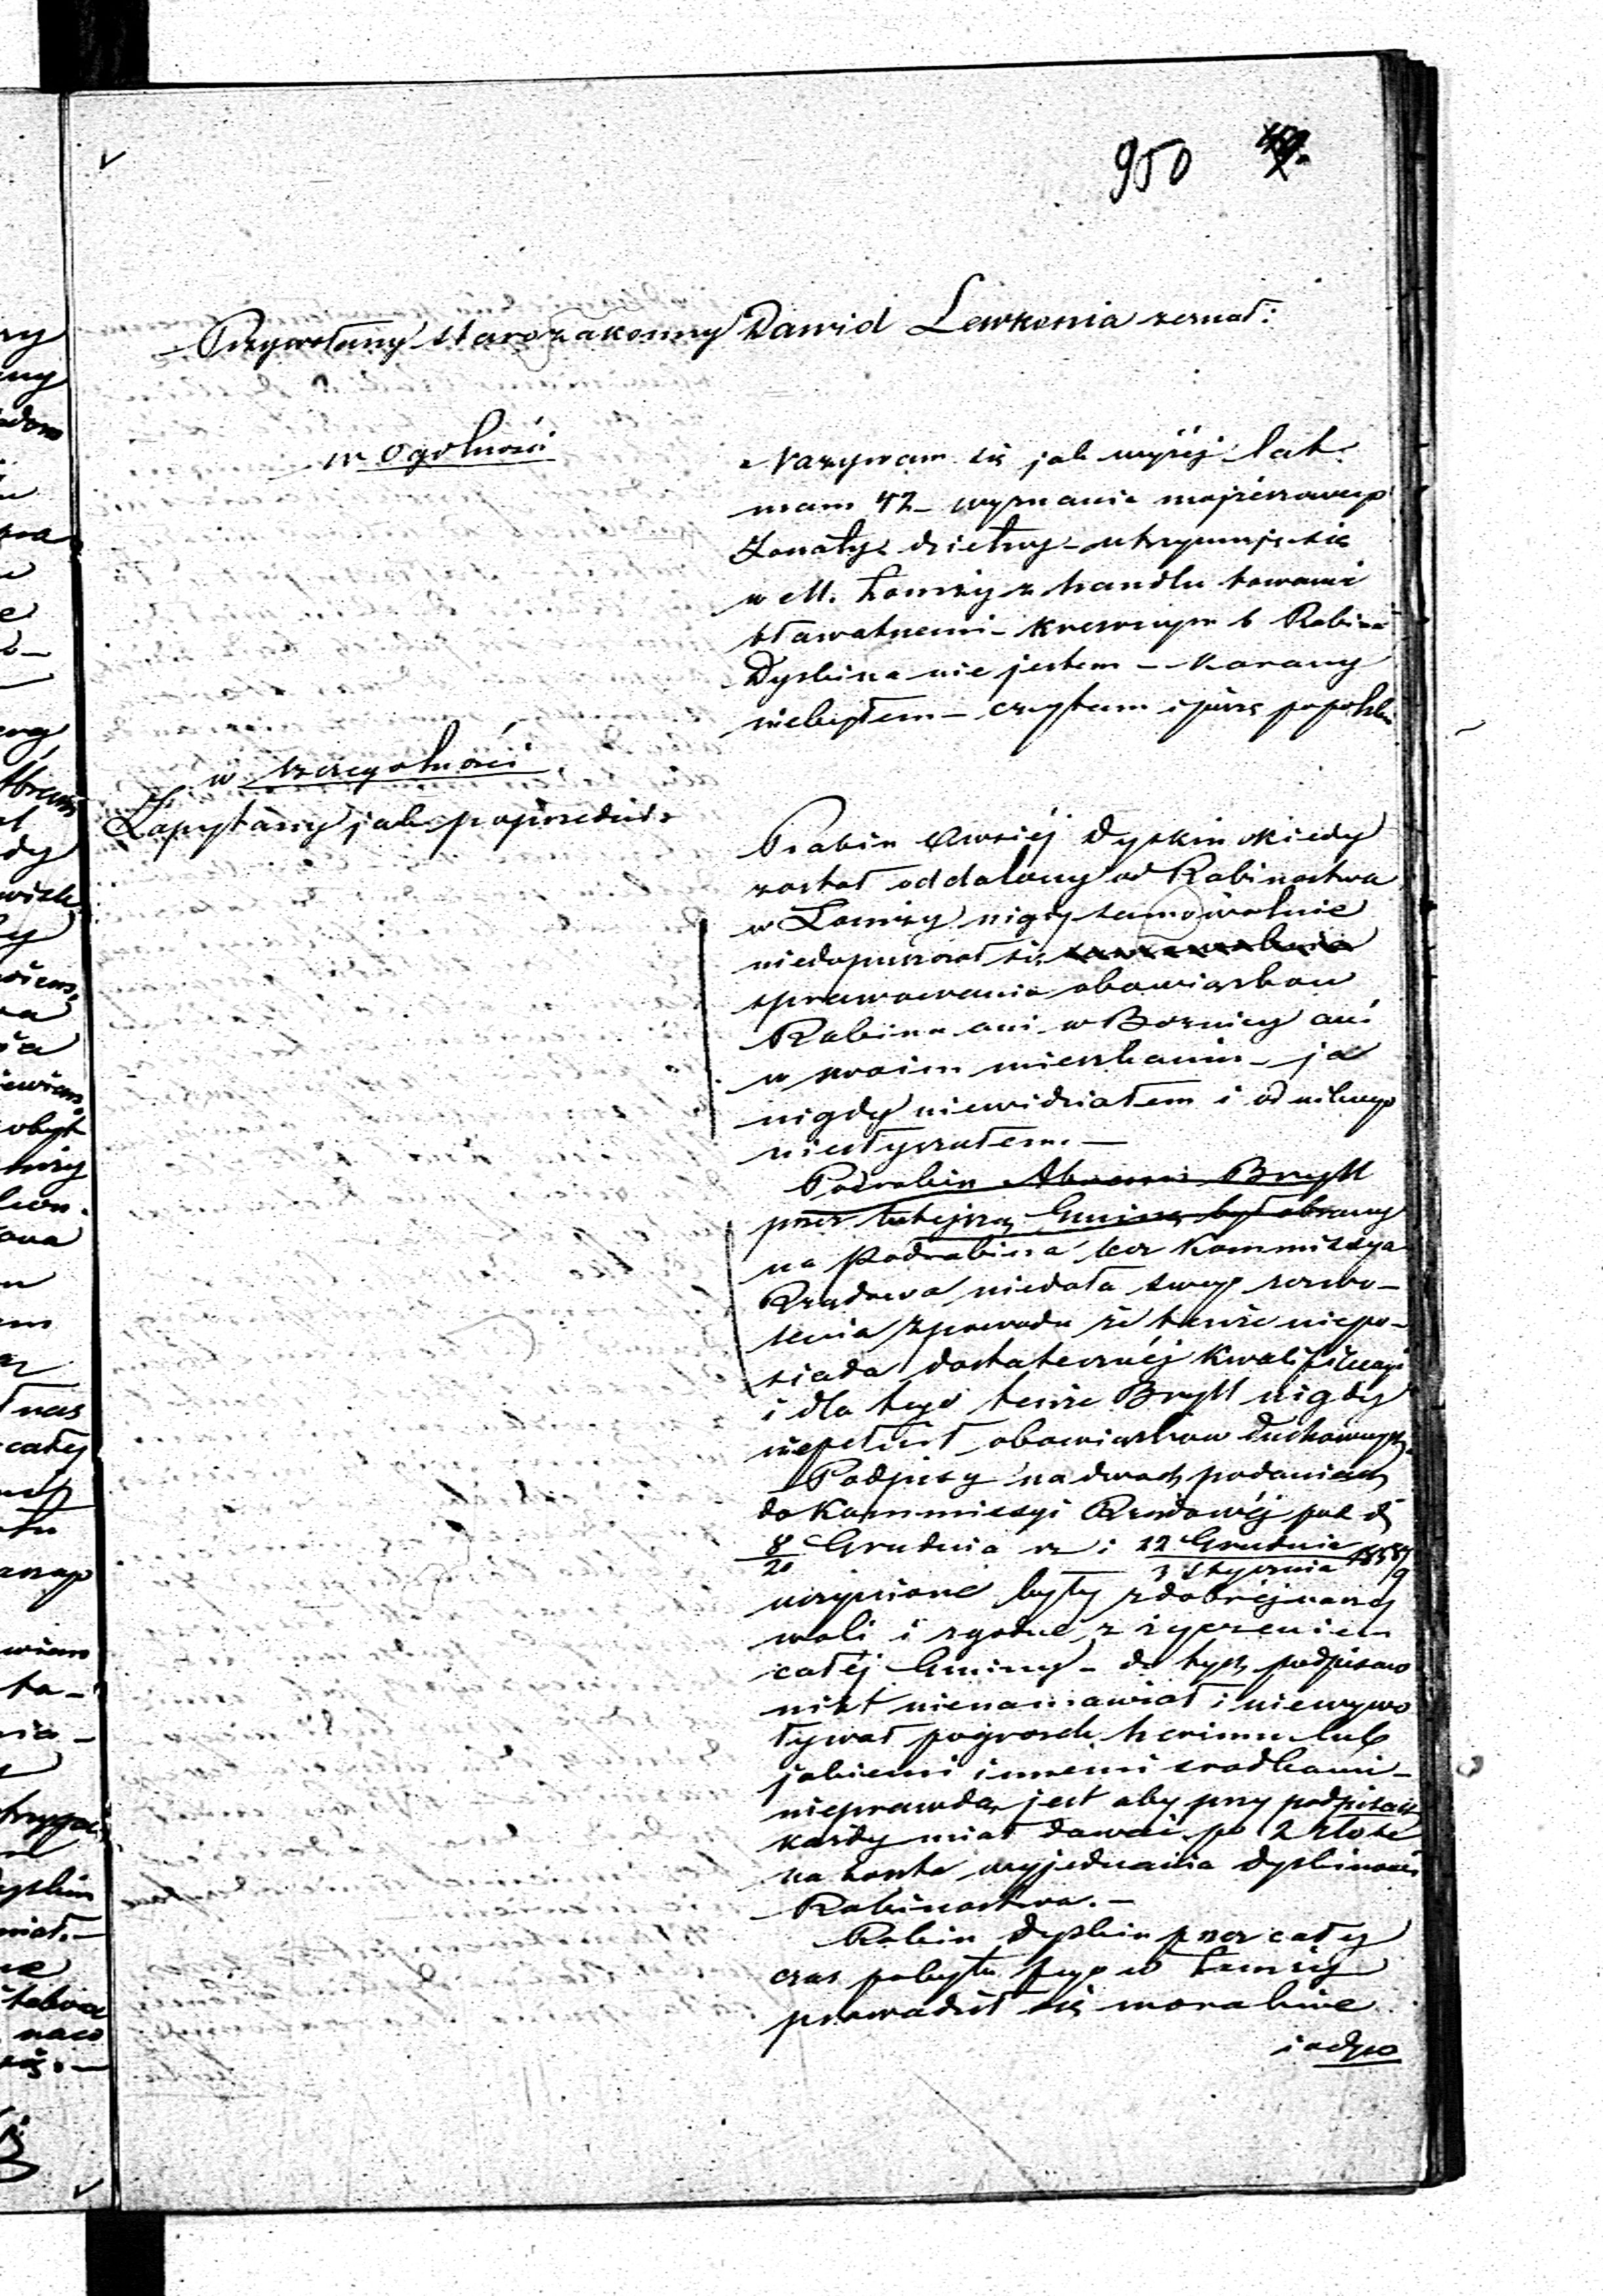 950
Przywołany starozakonny Dawid Lewkonia zeznał:
w ogolności
Nazywam się jak wyżej lat
mam 42 - wyznania mojżeszowego
żonaty dzietny - utrzymuję się
w M. Łomży z handlu towarami
bławatnemi - krewnym b Rabina
Dyskina nie jestem - karany
niebyłem - czytam i piszę popolsku
w szczegolności
Zapytany jak poprzednio
Rabin Owsiéj Dyskin kiedy
został oddalony od Rabinostwa
w Łomży nigdy samowolnie
niedopuszczał się samowolnie
sprawowania obowiązkow
Rabina ani w Boznicy ani
w swoim mieszkaniu - ja
nigdy niewidziałem i od nikogo
niesłyszałem. -
Podrabin Abram Bryll
przez tutejszą Gminę był obrany
na Podrabina lecz Kommissya
Rządowa niedała swego zezwo-
lenia z powodu że tenże niepo-
siada dostatecznéj kwalifikacyi
i dla tego tenże Bryll nigdy
niepełnił obowiązkow duchownych.
Podpisy na dwoch podaniach
do Kommissyi Rządowéj pod d
8/20 Grudnia rz i 22 Grudnia / 3 Stycznia 1858/9
uczynione były z dobréj naszéj
woli i zgodne z życzeniem
całéj Gminy - do tych podpisow
nikt nienamawiał i niewywo
ływał pogrozek herimu lub
jakiemi innemi srodkami -
nieprawdą jest aby przy podpisach
każdy miał dawać po 2 złote
na koszta wyjednania Dyskinowi
Rabinostwa. -
Rabin Dyskin przez cały
czas pobytu jego w Łomży
prowadził się moralnie
i odpo